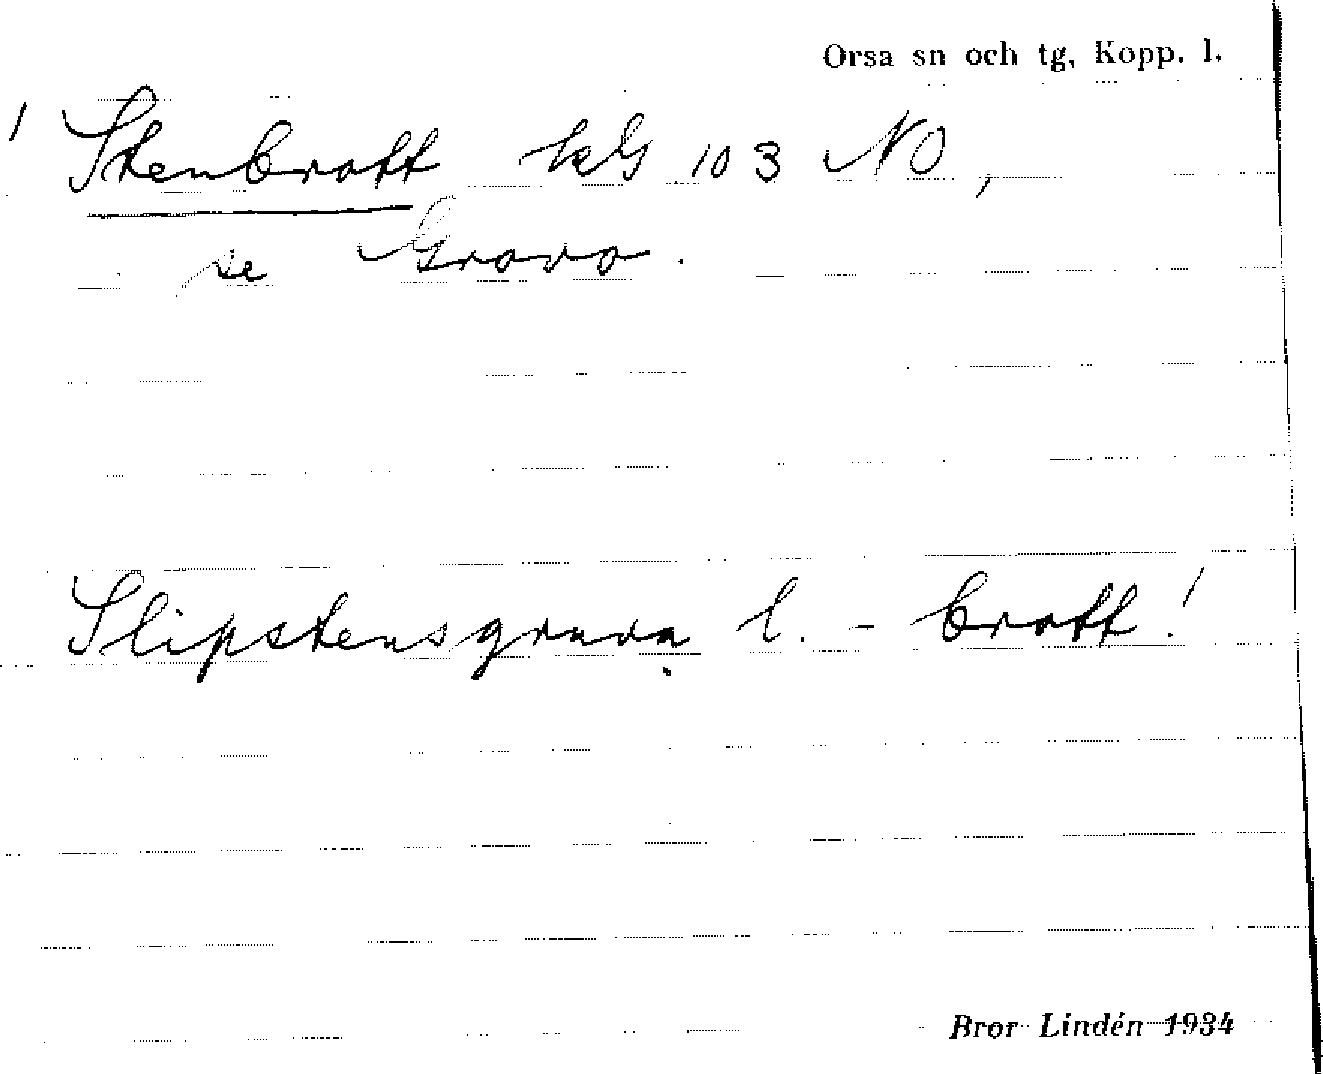 Orsa sn och tg, Kopp. l.
Stenbrott kG 103 NO,
se Grovo.
Slipstensgruva l. - brott!
Bror Lindén 1934